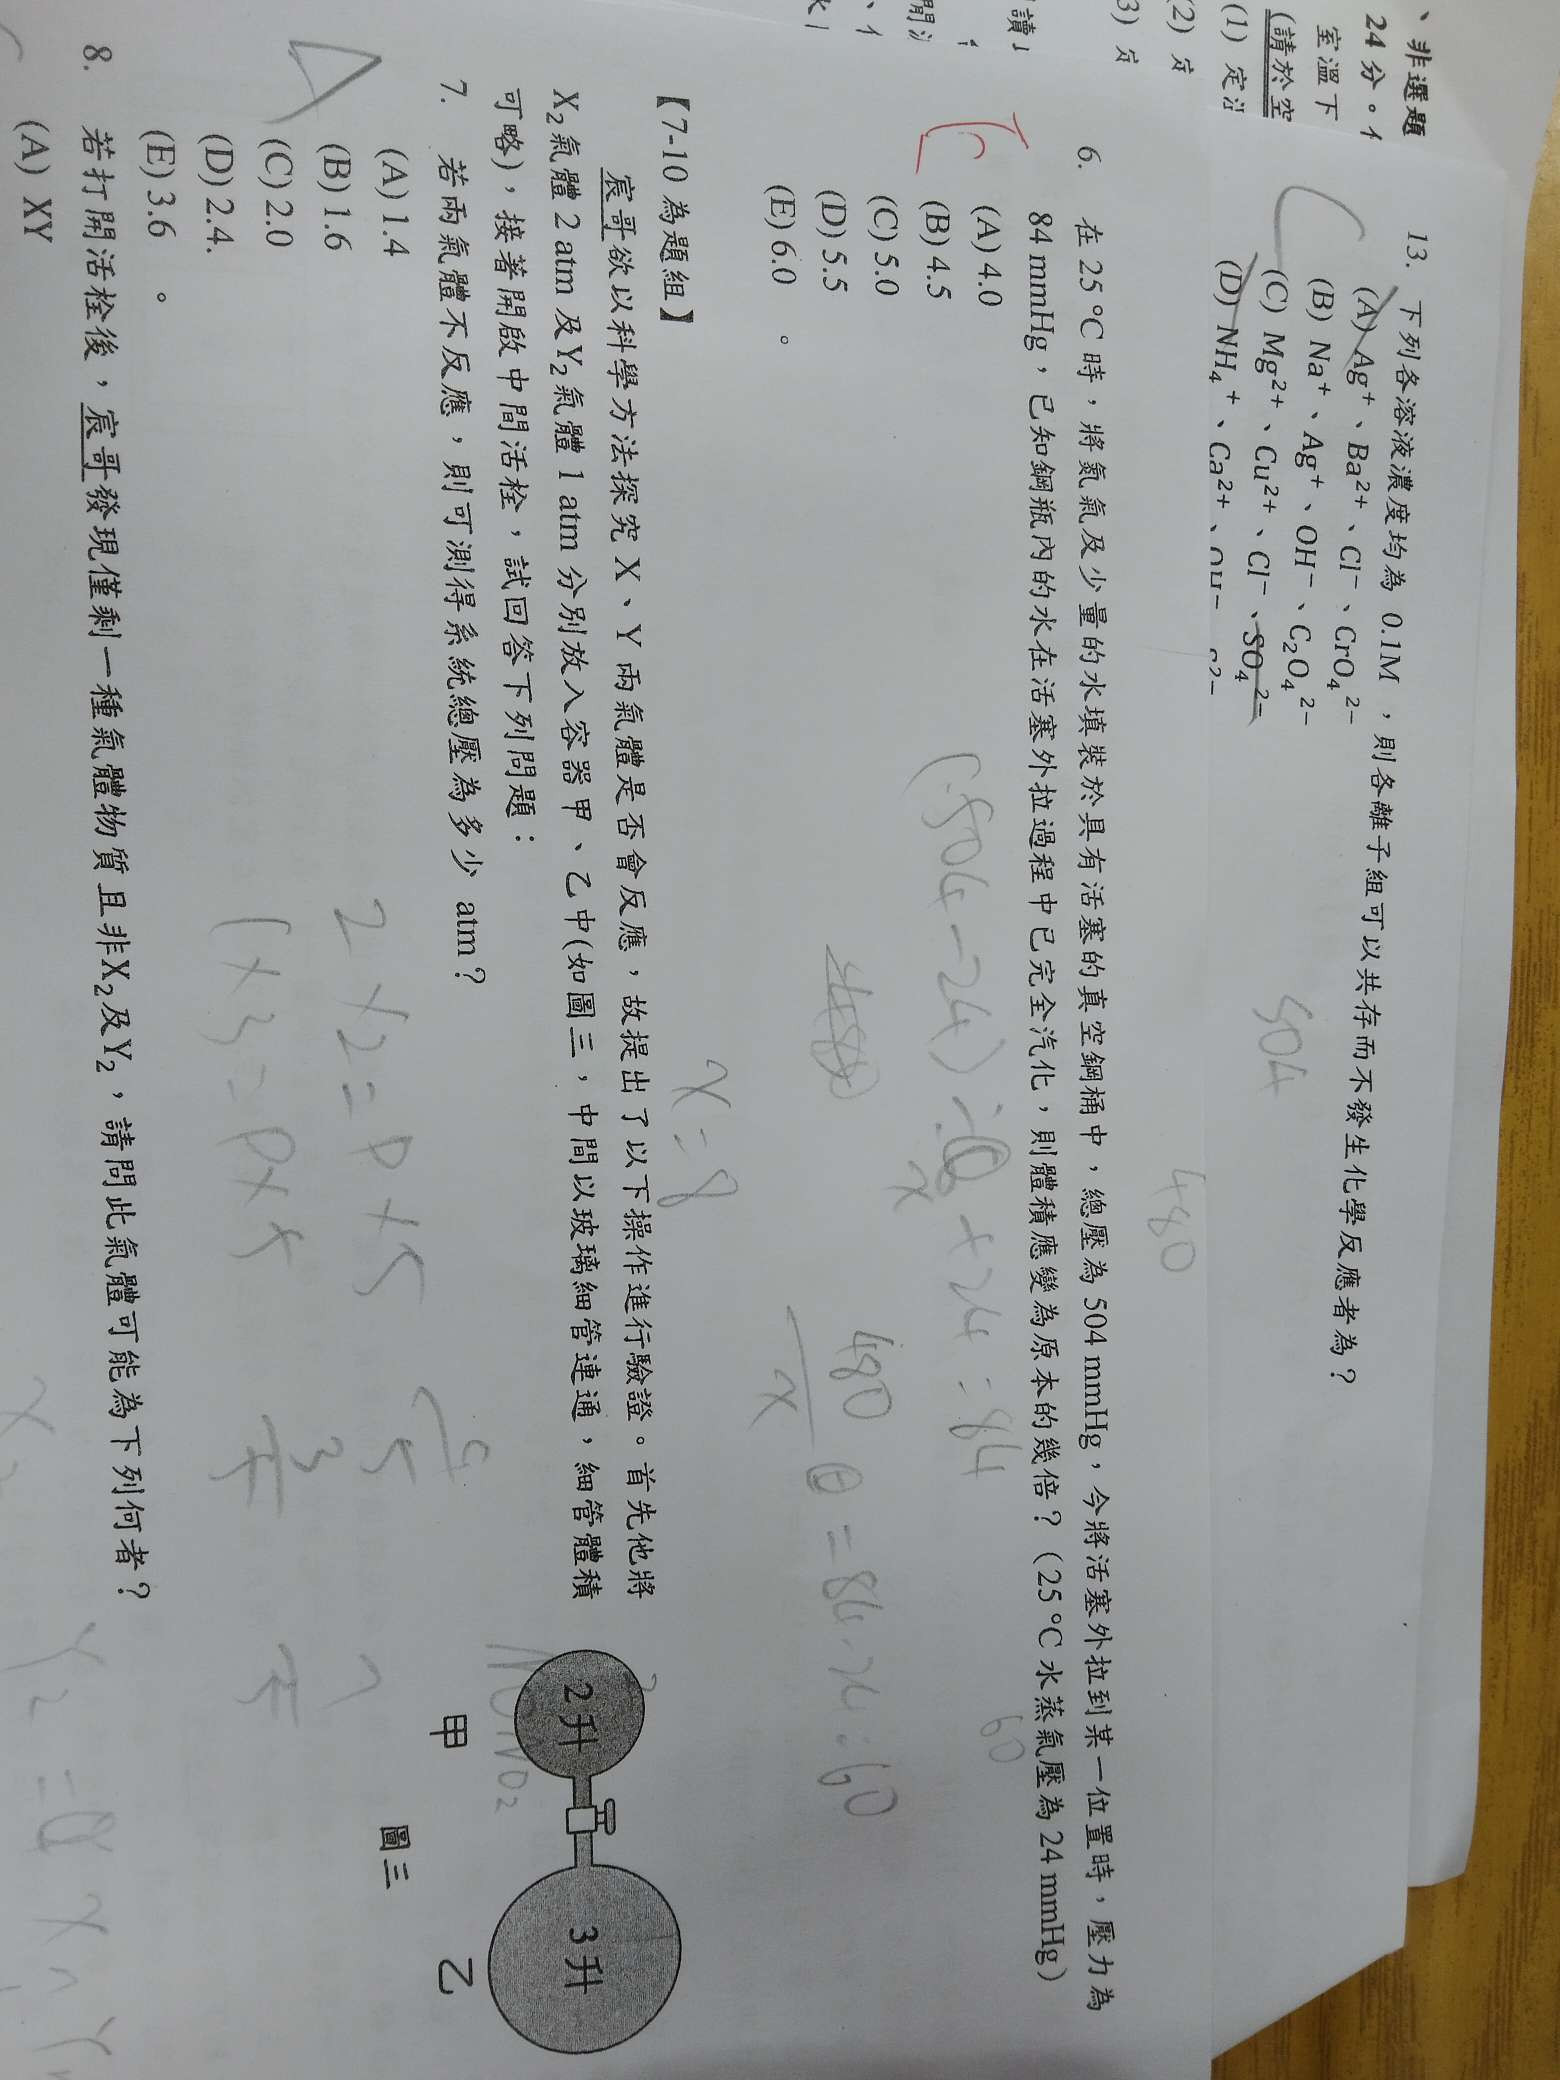 、非選題
24分。
室溫下
(請於空
(1) 定
(2) 定
(3) 定
13. 下列各溶液濃度均為 0.1M ，則各離子組可以共存而不發生化學反應者為？
(A) Ag⁺、Ba²⁺、Cl⁻、CrO₄²⁻
(B) Na⁺、Ag⁺、OH⁻、C₂O₄²⁻
(C) Mg²⁺、Cu²⁺、Cl⁻、SO₄²⁻
(D) NH₄⁺、Ca²⁺、OH⁻
504
480
6. 在 25 °C 時，將氮氣及少量的水填裝於具有活塞的真空鋼桶中，總壓為 504 mmHg，今將活塞外拉到某一位置時，壓力為
84 mmHg，已知鋼瓶內的水在活塞外拉過程中已完全汽化，則體積應變為原本的幾倍？（25 °C 水蒸氣壓為 24 mmHg）
(A) 4.0
(B) 4.5
(C) 5.0
(D) 5.5
(E) 6.0 。
(504-24)
+24=84
60
480
x
=84-24=60
x=8
【7-10 為題組】
宸哥欲以科學方法探究 X、Y 兩氣體是否會反應，故提出了以下操作進行驗證。首先他將
X₂氣體 2 atm 及Y₂氣體 1 atm 分別放入容器甲、乙中(如圖三，中間以玻璃細管連通，細管體積
可略)，接著開啟中間活栓，試回答下列問題：
2升
3升
甲
乙
圖三
7. 若兩氣體不反應，則可測得系統總壓為多少 atm？
(A) 1.4
(B) 1.6
(C) 2.0
(D) 2.4.
(E) 3.6 。
2×2=P×5
1×3=P×5
4
5
3
5
7
5
8. 若打開活栓後，宸哥發現僅剩一種氣體物質且非X₂及Y₂，請問此氣體可能為下列何者？
(A) XY